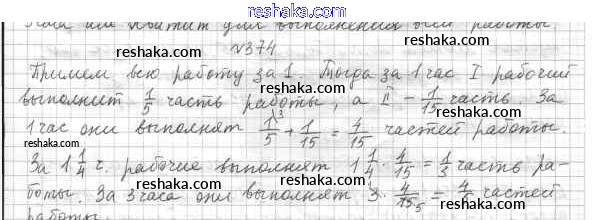 reshaka.com
хватит для выполнения всей работы
reshaka.com
№374
reshaka.com
Примем всю работу за 1. Тогда за 1 час I рабочий
reshaka.com
выполнит 1/5 часть работы, а II – 1/15 часть. За
1 час они выполнят 1/5 ³ + 1/15 = 4/15 частей работы.
reshaka.com
reshaka.com
За 1 1/4 ч. рабочие выполнят 1 1/4 · 4/15 = 1/3 часть ра-
reshaka.com
боты. За 3 часа они выполнят 3 · 4/15 5 = 4/5 частей
reshaka.com
работы.